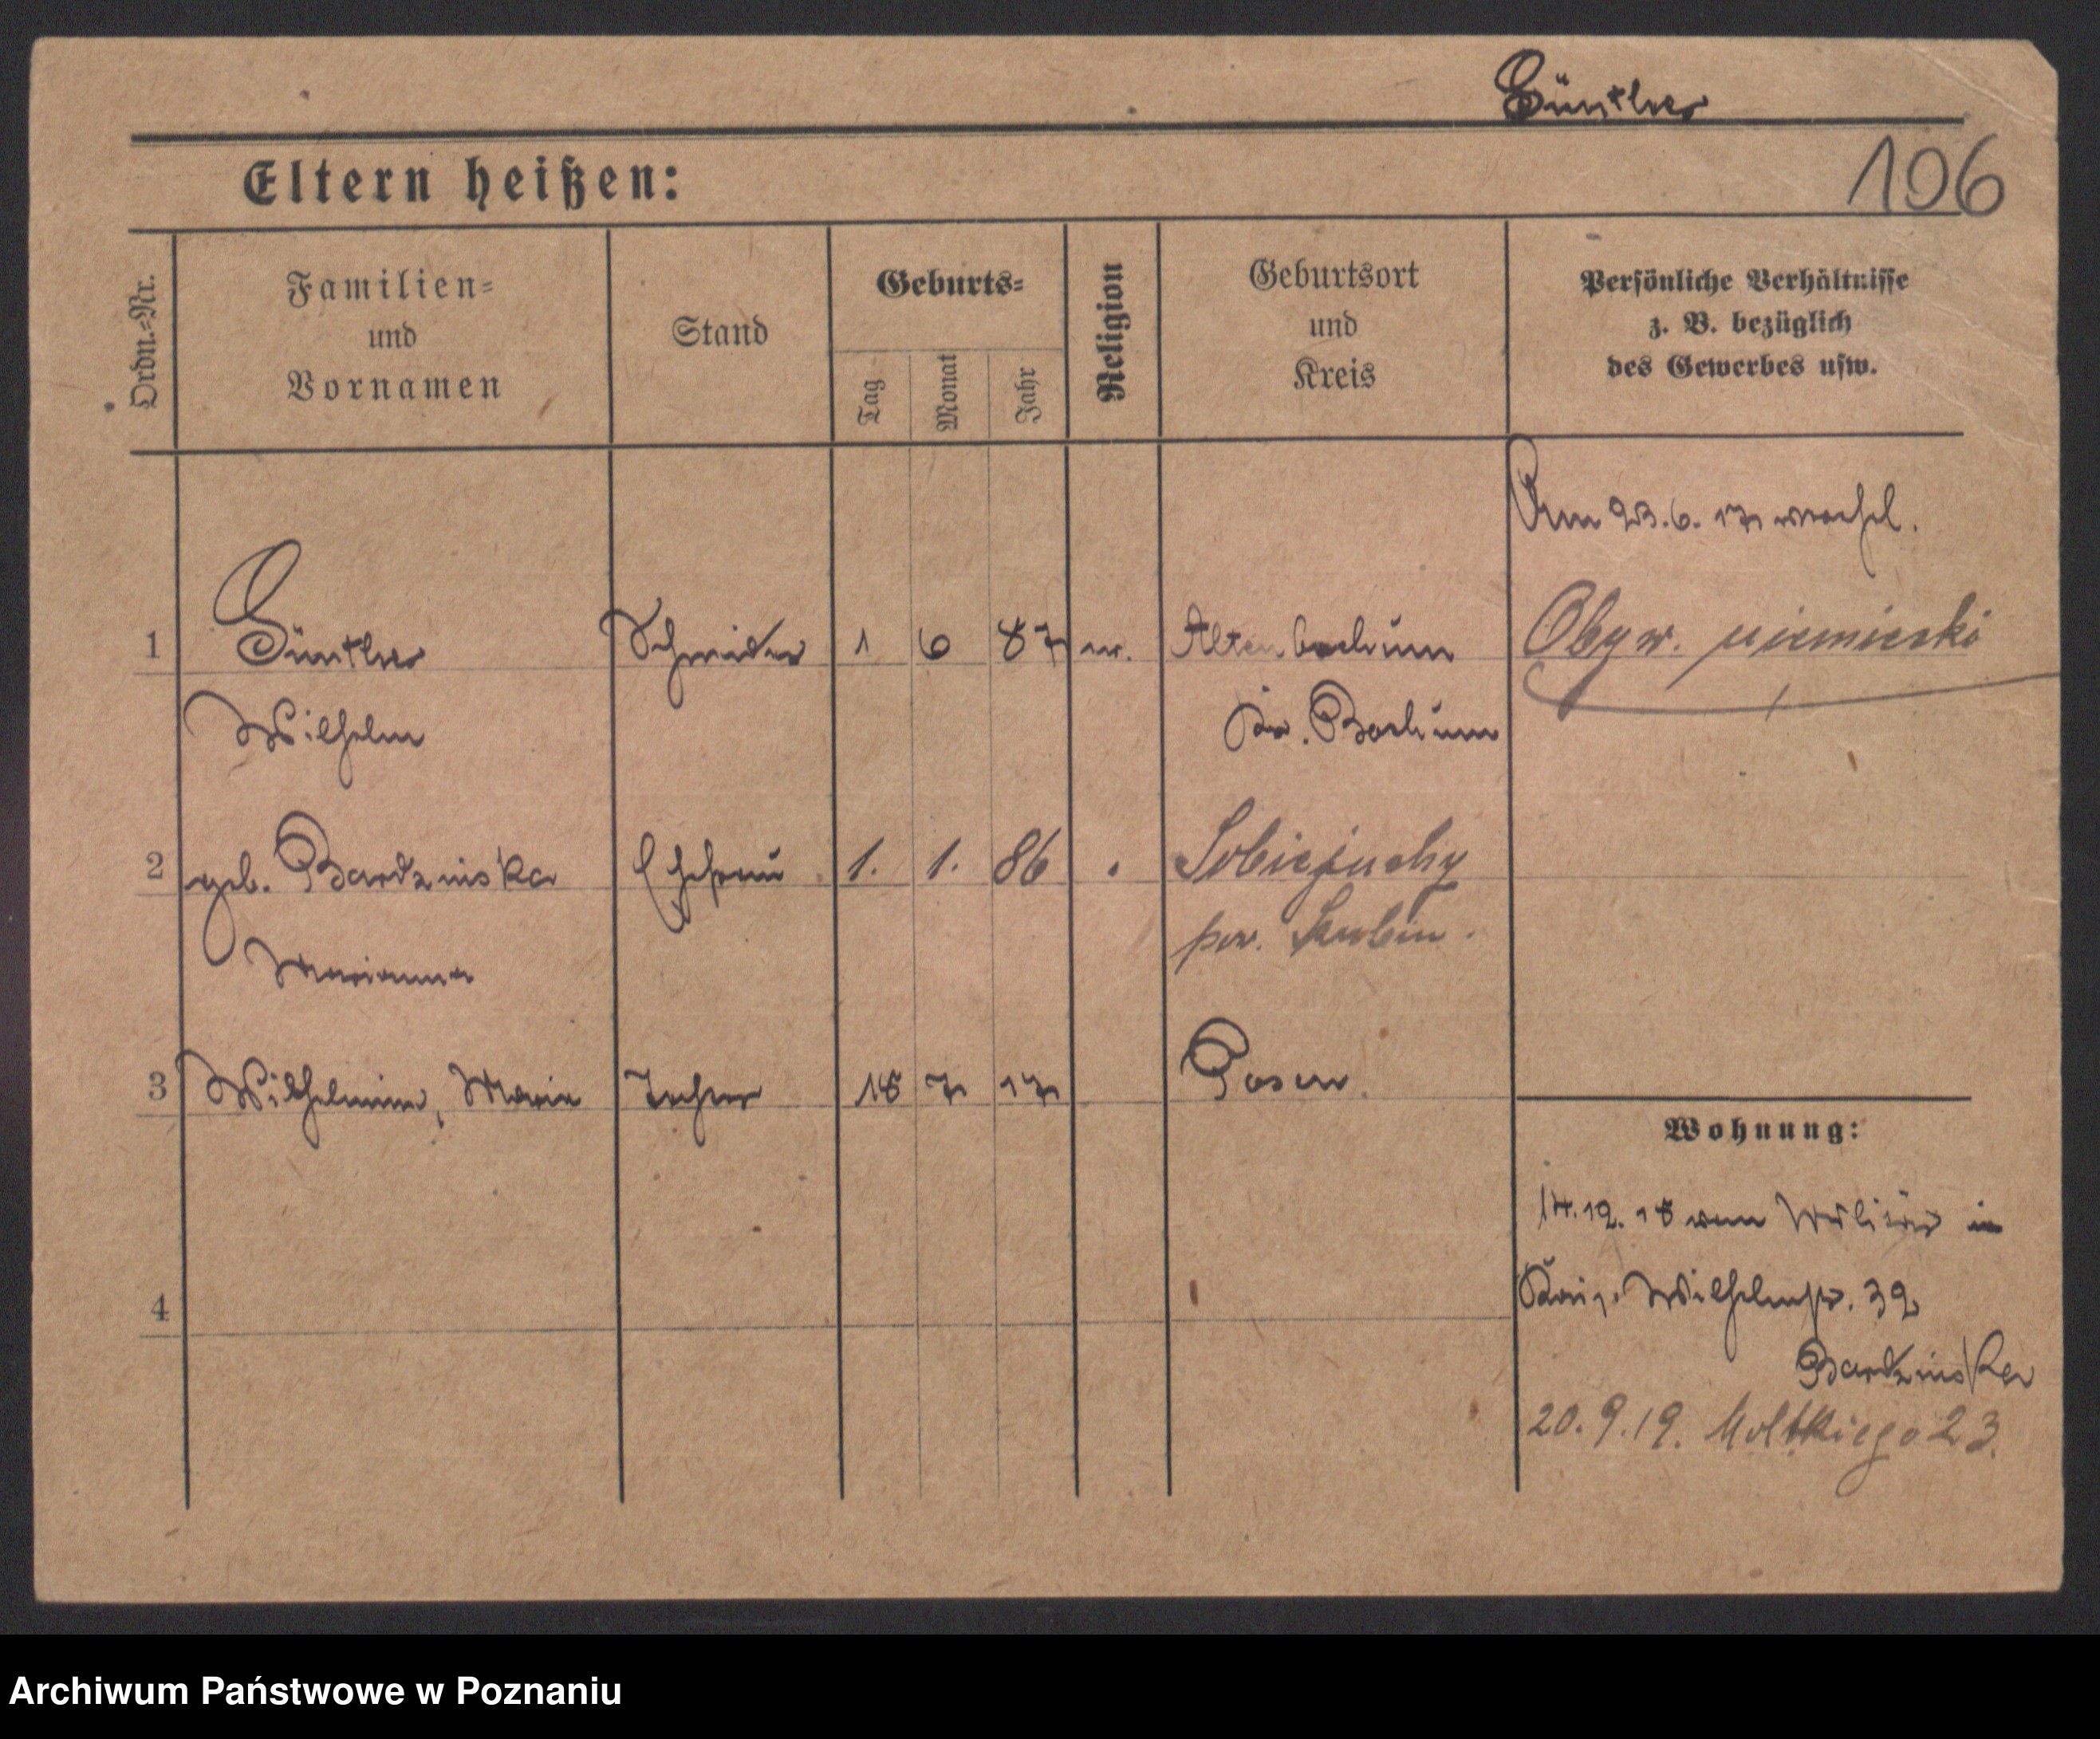 Günther
106
Eltern heißen:
Ordn.=Nr.
Familien=
und
Vornamen
Stand
Geburts=
Tag
Monat
Jahr
Religion
Geburtsort
und
Kreis
Persönliche Verhältnisse
z. B. bezüglich
des Gewerbes usw.
Am 23.6.17
1 Günther Schneider 1 6 87 Altenbochum Obyw. niemiecki
Wilhelm Kr. Bochum
2 geb. Bardzinska Ehefrau 1. 1. 86 Sobiejuchy
Marianna pow. Szubin.
3 Wilhelmine, Maria Tochter 18 7 17 Posen
Wohnung:
14.12.18 vom Militär in
4
Wilhelmstr. 39
Bardzinska
20.9.19. Moltkiego 23.
Archiwum Państwowe w Poznaniu